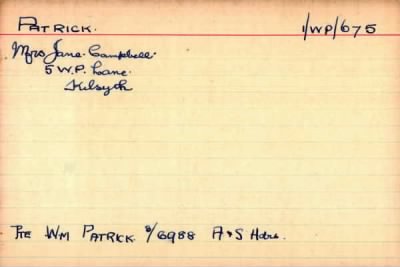 PATRICK. 1/WP/675
Mrs Jane Campbell.
5 W.P. Lane.
Kilsyth
Pte WM PATRICK. 3/6988 A & S Hdrs.